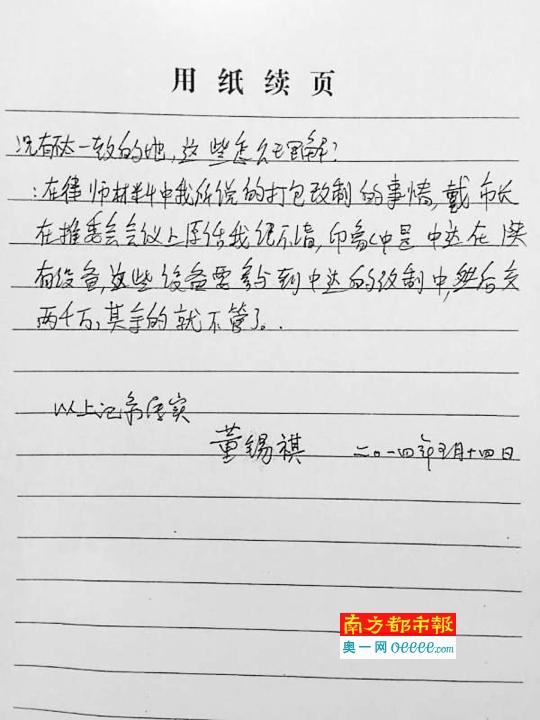 用纸续页
况有不太一致的地,这些怎么理解?
:在律师材料中我所说的打包改制的事情,戴市长
在推委会会议上原话我记不清,印象中是中达在陕
有设备,这些设备要参与到中达的改制中,然后交
两千万,其余的就不管了。
以上记录属实
董锡祺 二〇一四年五月十四日
南方都市報
奥一网oeeee.com